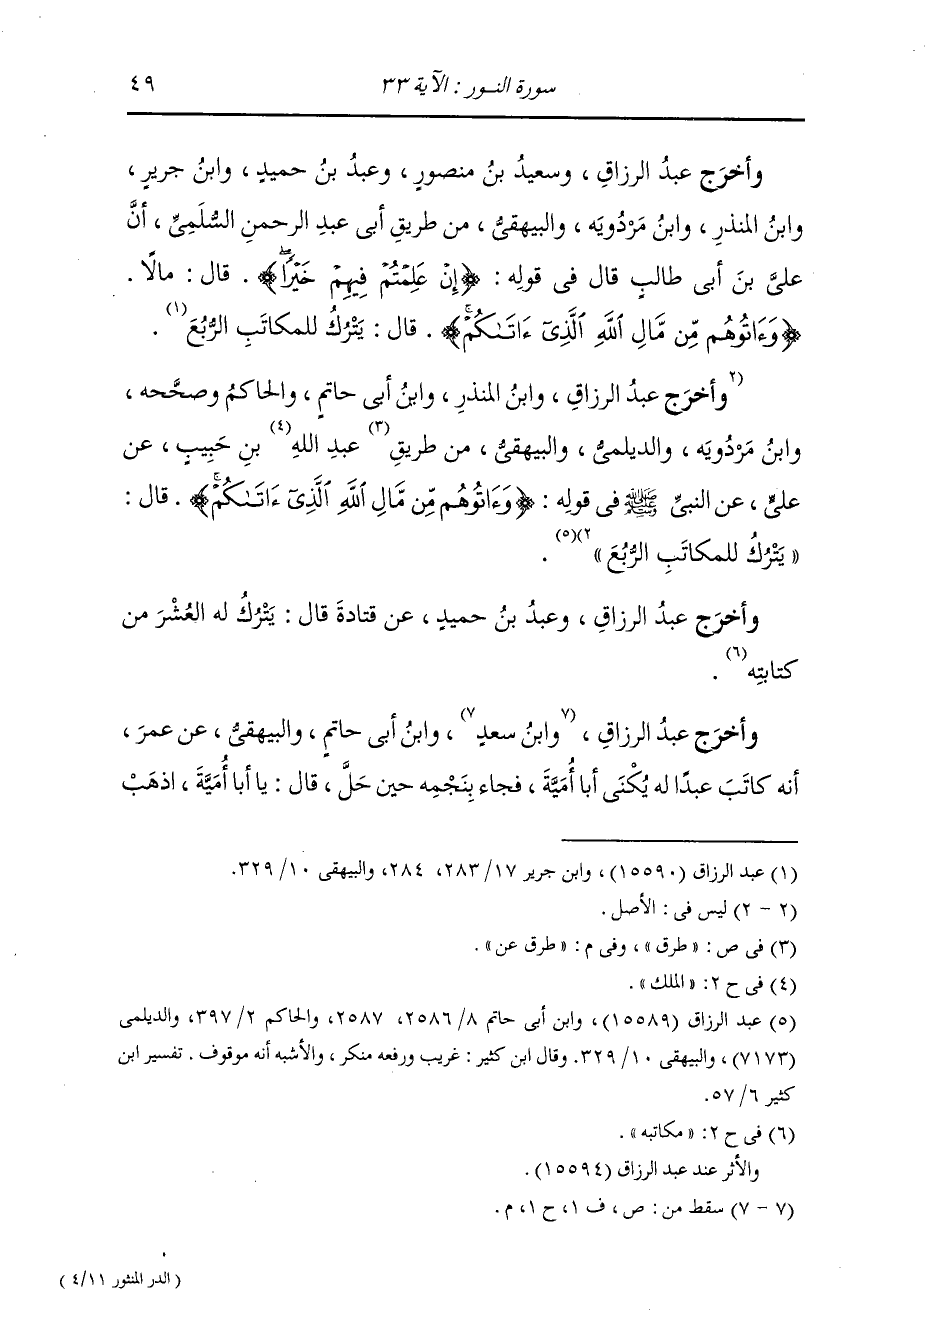 سورة النــور : الآية ٣٣ ٤٩
وأخرَج عبدُ الرزاقِ ، وسعيدُ بنُ منصورٍ ، وعبدُ بنُ حميدٍ ، وابنُ جريرٍ ،
وابنُ المنذرِ ، وابنُ مَرْدُويَه ، والبيهقىُّ ، من طريقِ أبى عبدِ الرحمنِ السُّلَمِىِّ ، أنَّ
علىَّ بنَ أبى طالبٍ قال فى قولِه : ﴿إِنْ عَلِمْتُمْ فِيهِمْ خَيْرًاۖ﴾ . قال : مالًا .
﴿وَءَاتُوهُم مِّن مَّالِ ٱللَّهِ ٱلَّذِىٓ ءَاتَىٰكُمْۚ﴾ . قال : يَتْرُكُ للمكاتَبِ الرُّبُعَ(١) .
(٢وأخرَج عبدُ الرزاقِ ، وابنُ المنذرِ ، وابنُ أبى حاتمٍ ، والحاكمُ وصحَّحه ،
وابنُ مَرْدُويَه ، والديلمىُّ ، والبيهقىُّ ، من طريقِ(٣) عبدِ اللهِ(٤) بنِ حَبِيبٍ ، عن
علىٍّ ، عن النبىِّ ﷺ فى قولِه : ﴿وَءَاتُوهُم مِّن مَّالِ ٱللَّهِ ٱلَّذِىٓ ءَاتَىٰكُمْۚ﴾ . قال :
« يَتْرُكُ للمكاتَبِ الرُّبُعَ »٢)(٥) .
وأخرَج عبدُ الرزاقِ ، وعبدُ بنُ حميدٍ ، عن قتادةَ قال : يَتْرُكُ له العُشْرَ من
كتابتِه(٦) .
وأخرَج عبدُ الرزاقِ ، (٧وابنُ سعدٍ٧) ، وابنُ أبى حاتمٍ ، والبيهقىُّ ، عن عمرَ ،
أنه كاتَبَ عبدًا له يُكْنَى أبا أُمَيَّةَ ، فجاء بِنَجْمِه حين حَلَّ ، قال : يا أبا أُمَيَّةَ ، اذهَبْ
(١) عبد الرزاق (١٥٥٩٠) ، وابن جرير ١٧/ ٢٨٣، ٢٨٤، والبيهقى ١٠/ ٣٢٩.
(٢ - ٢) ليس فى : الأصل .
(٣) فى ص : « طرق » ، وفى م : « طرق عن » .
(٤) فى ح ٢: « الملك » .
(٥) عبد الرزاق (١٥٥٨٩) ، وابن أبى حاتم ٨/ ٢٥٨٦، ٢٥٨٧، والحاكم ٢/ ٣٩٧، والديلمى
(٧١٧٣) ، والبيهقى ١٠/ ٣٢٩. وقال ابن كثير : غريب ورفعه منكر ، والأشبه أنه موقوف . تفسير ابن
كثير ٦/ ٥٧.
(٦) فى ح ٢: « مكاتبه » .
والأثر عند عبد الرزاق (١٥٥٩٤) .
(٧ - ٧) سقط من : ص ، ف ١، ح ١، م .
( الدر المنثور ٤/١١ )